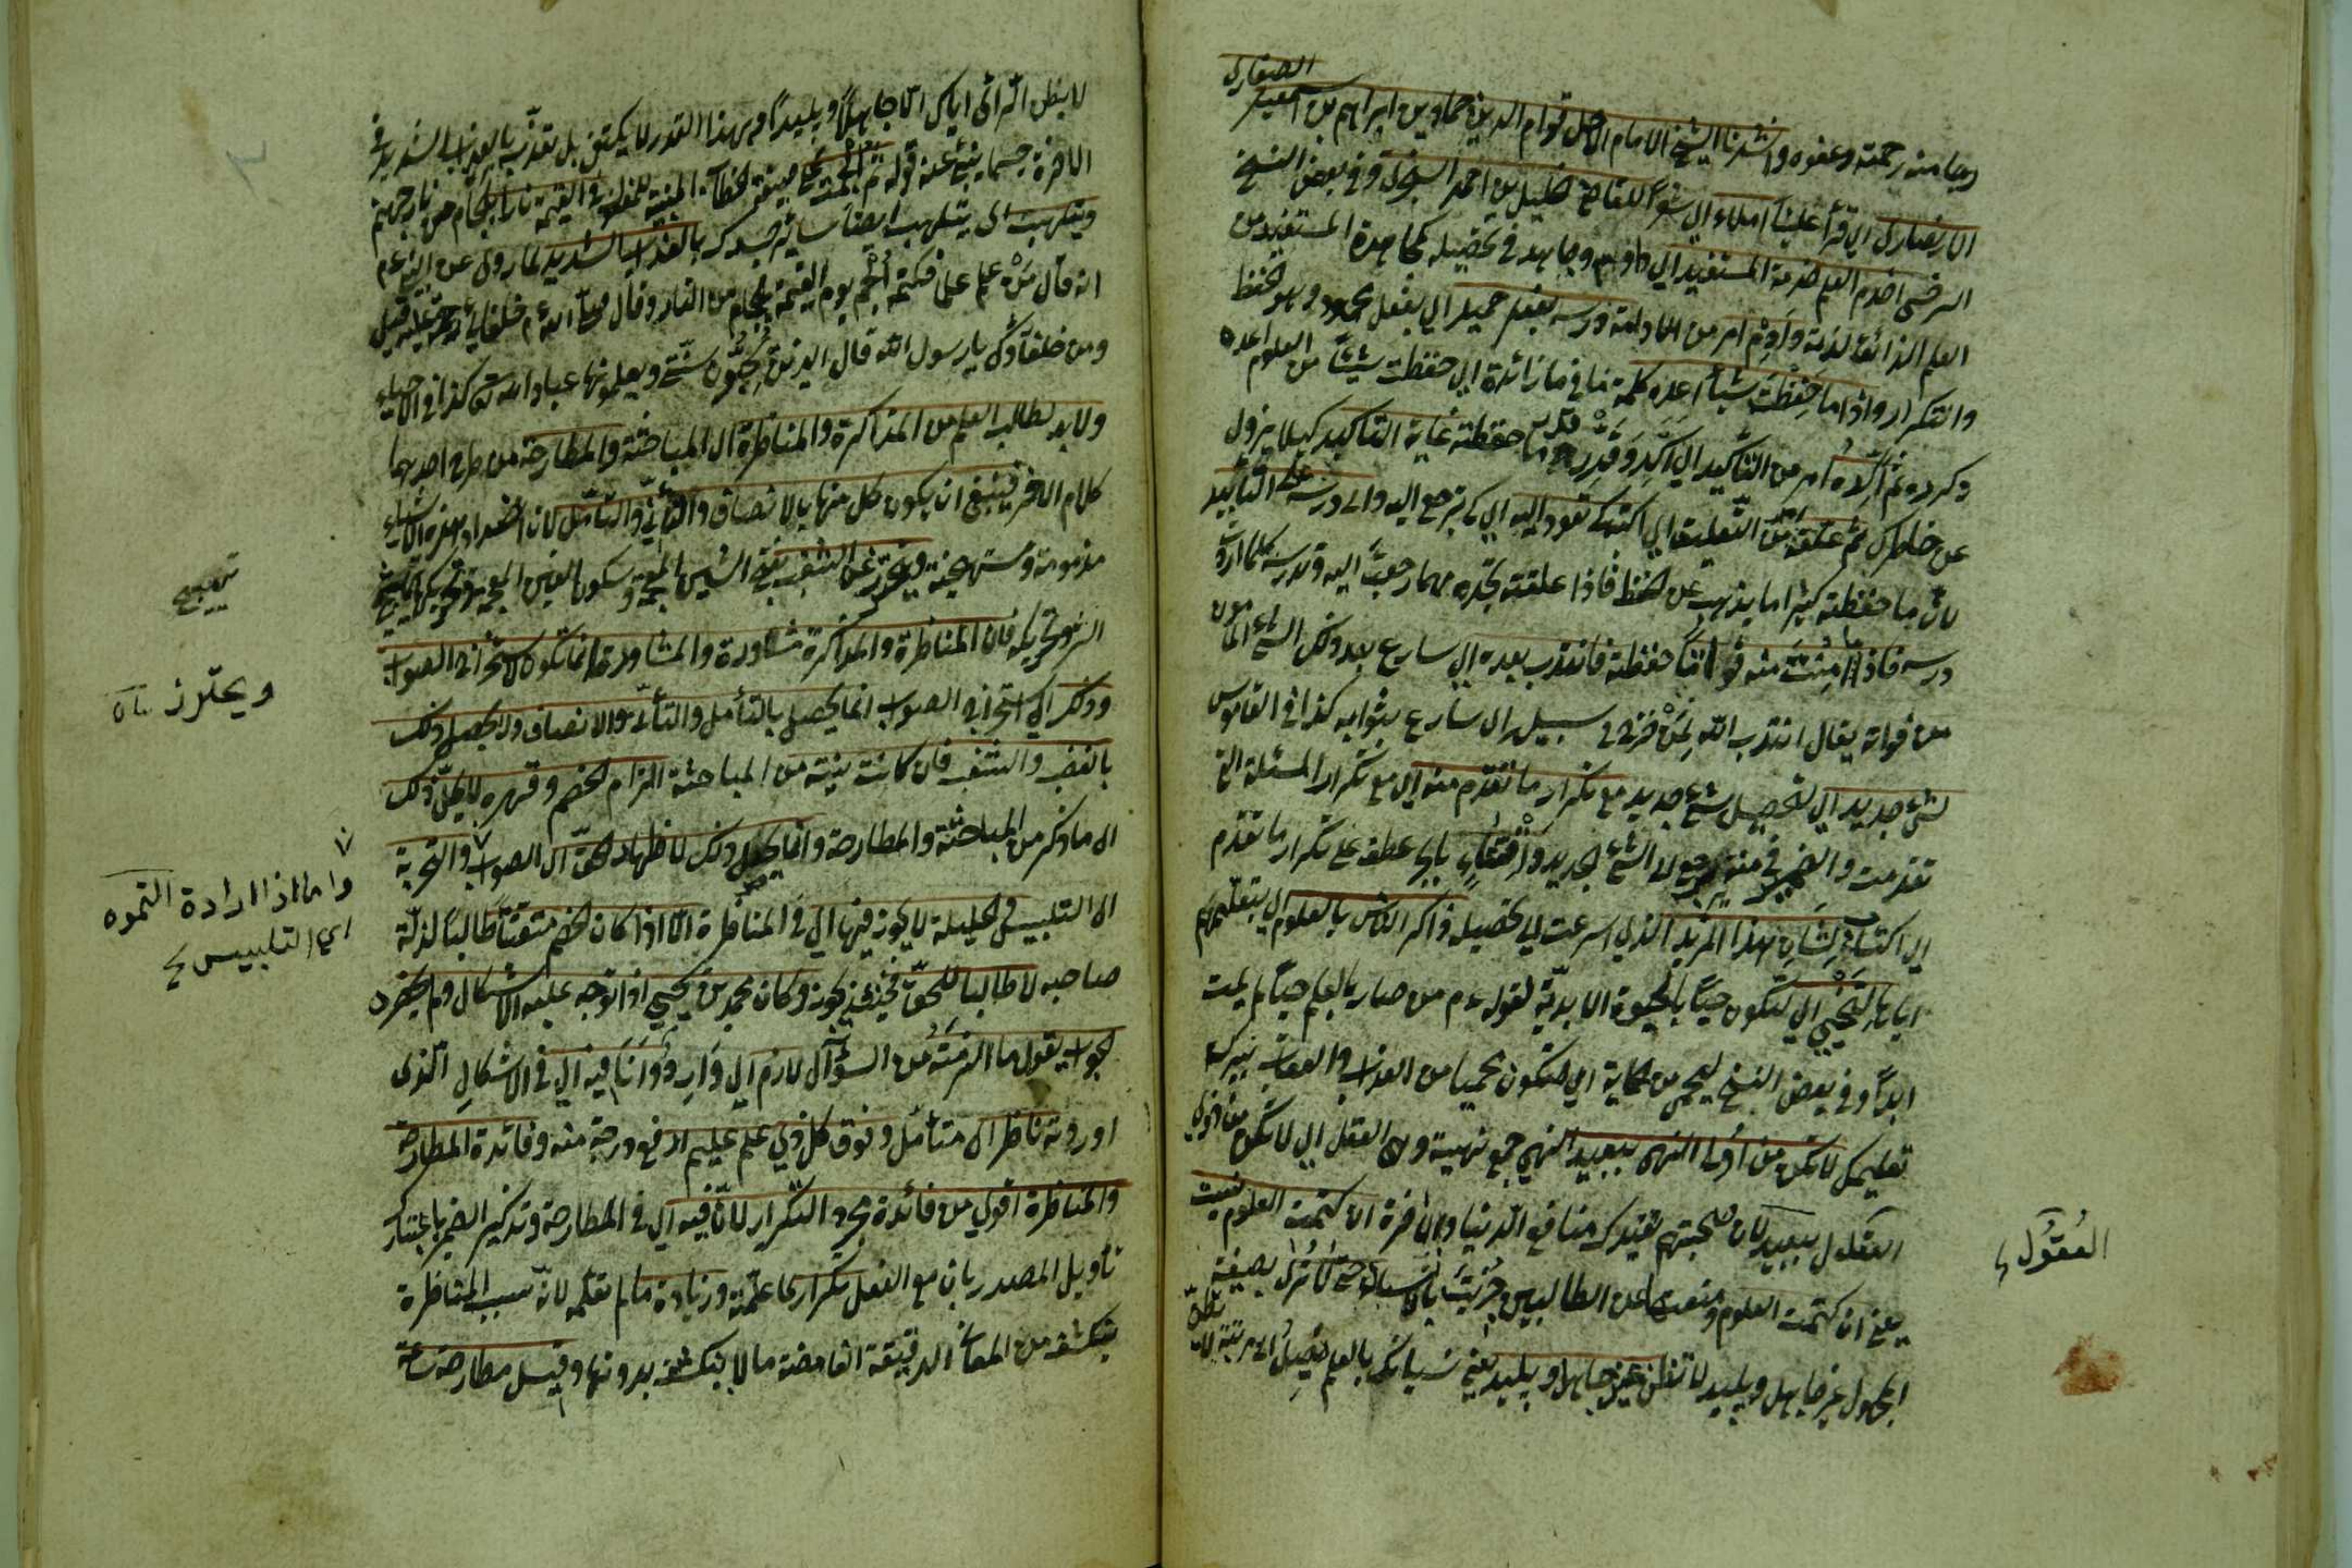 الصفاري
رجا منه رحمته وعفوه وانشدنا الشيخ الامام الاجل قوام الدين حماد بن ابراهيم بن اسمعيل
الانصاري اي قرأ علينا املاء اي شعرا للقاضي خليل بن احمد السجزي وفي بعض النسخ
السرخسي اخدم العلم خدمة المستفيد اي داوم وجاهد في تحصيله كمجاهدة المستفيد من
العلم الذائق لذته وأدم امر من المداومة درسه بفعل حميد اي بفعل محمود وهو الحفظ
والتكرار واذا ما حفظت شيأ اعده كلمة ما في ما زائدة اي حفظت شيئا من العلوم اعده
وكرره ثم اكده امر من التأكيد اي اكد وقرر ما حفظته غاية التاكيد كيلا يزول
عن خاطرك ثم علقه امر من التعليق اي اكتبه كي تعود اليه اي كي ترجع اليه والى درسه على التأبيد
لان ما حفظته كثيرا ما يذهب عن الحفظ فاذا علقته تجده مهما رجعت اليه وتدرسه كلما اردت
درسه فاذا ما أمنت منه فواتا حفظته فانتدب بعده اي سارع بعد ذلك الشيء المأمون
من فواته يقال انتدب الله لمن خرج في سبيله اي سارع بثوابه كذا في القاموس
لشيء جديد اي لتحصيل شيء جديد مع تكرار ما تقدم منه اي مع تكرار المسئلة التي
تقدمت والضمير في منه يرجع الى الشيء الجديد واقتناء بالجر عطف على تكرار ما تقدم
اي اكتساب لشان هذا المزيد الذي اسرعت الى تحصيله ذاكر الناس بالعلوم اي بتعليمهم
اياها لتحيى اي لتكون حيا بالحيوة الابدية لقوله عم من صار بالعلم حيا لم يمت
ابدا وفي بعض النسخ لتحمى من الحماية اي لتكون محميا من العذاب والعقاب ببركة
تعليمك لا تكن من اولى النهى ببعيد النهى جمع نهية وهي العقل اي لا تكن من ذوي
العقول ببعيد لان صحبتهم تفيدك منافع الدنيا والاخرة ان كتمت العلوم نسيت
العقول
يعني ان كتمت العلوم ومنعت عن الطالبين جزيت بالنسيان حتى لا ترى بصيغة
المجهول غير جاهل وبليد لا تظن غير جاهل وبليد يعني نسيانك بالعلم يصل الى مرتبة لان
لا يظن الرائي اياك الا جاهلا وبليدا وبهذا القدر لا يكتفى بل تعذب بالعذاب الشديد في
الاخرة حسبما ينبئ عنه قوله ثم الجمت بصيغة الخطاب المبنية للمفعول في القيمة نارا بلجام من نار جهنم
وتلهبت اي يتلهب ايضا سائر جسدك بالعذاب الشديد لما روي عن النبي عم
انه قال من علم علما فكتمه الجم يوم القيمة بلجام من النار وقال عم خلفائي رحمة الله عليه قيل
ومن خلفاؤك يا رسول الله قال الذين يحبون سنتي ويعلمونها عباد الله تعالى كذا في الاحياء
ولا بد لطالب العلم من المذاكرة والمناظرة اي المباحثة والمطارحة من طرح احدهما
كلام الاخر فينبغي ان يكون كل منها بالانصاف والتأني والتأمل لان اضداد هذه الاشياء
مذمومة ومستهجنة ويتحرز عن الشغب بفتح الشين المعجمة وسكون الغين المعجمة وتحريكها تهييج
تهييج
الشر وتحريكه فان المناظرة والمذاكرة مشاورة والمشاورة انما تكون لاستخراج الصواب
ويحترز
وذلك اي استخراج الصواب انما يحصل بالتأمل والتأني والانصاف ولا يحصل ذلك
بالغضب والشغب فان كانت نيته من المباحثة الزام الخصم وقهره لا يحل ذلك
اي ما ذكر من المباحثة والمطارحة وانما يحل ذلك لاظهار الحق اي الصواب والتمويه
واما اذا اراد التموه
اي التلبيس
اي التلبيس في الحيلة لا يجوز فيها اي في المناظرة الا اذا كان الخصم متعنتا طالبا لذلة
صاحبه لا طالبا للحق فحينئذ يجوز وكان محمد بن يحيى اذا توجه عليه الاشكال ولم يحضره
الجواب يقول ما الزمته من السؤال لازم اي وارد وانا فيه اي في الاشكال الذى
اوردته ناظر اي متأمل وفوق كل ذي علم عليم ارفع درجة منه وفائدة المطارحة
والمناظرة اقوى من فائدة مجرد التكرار لان فيه اي في المطارحة وتذكير الضمير باعتبار
تأويل المصدر بان مع الفعل تكرار ما علمته وزيادة ما لم تعلمه لانه سبب المناظرة
ينكشف من المعاني الدقيقة الغامضة ما لا ينكشف بدونها وقيل مطارحة ساعة